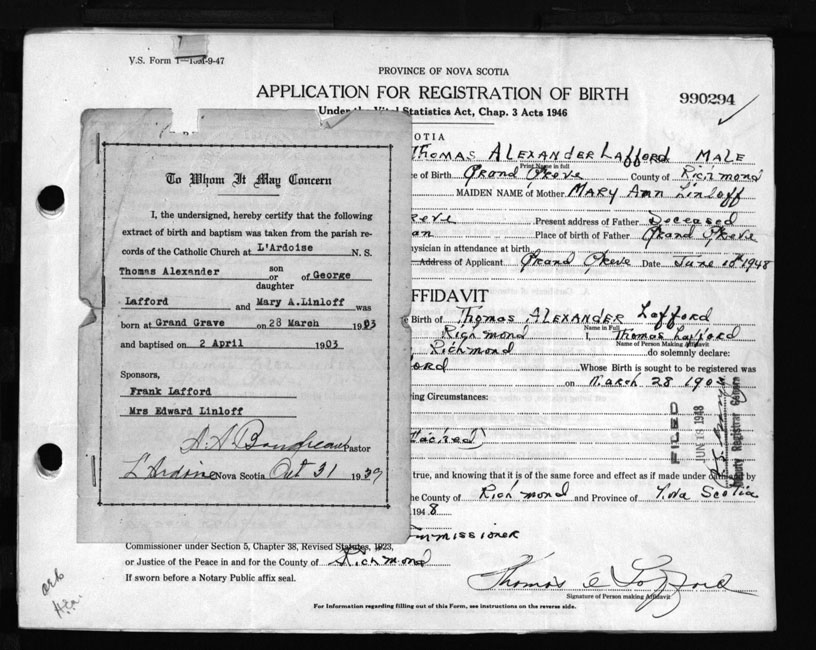 V.S. Form 1—
PROVINCE OF NOVA SCOTIA
APPLICATION FOR REGISTRATION OF BIRTH
990294
Under the Vital Statistics Act, Chap. 3 Acts 1946
SCOTIA
THOMAS ALEXANDER Lafford MALE
Print Name in full
ce of Birth Grand Greve County of Richmond
MAIDEN NAME of Mother MARY Ann Linloff
reve Present address of Father Deceased
an Place of birth of Father Grand Greve
ysician in attendance at birth
Address of Applicant Grand Greve Date June 1948
FFIDAVIT
e Birth of THOMAS ALEXANDER Lafford
Name in Full
Richmond I, Thomas Lafford
Name of Person Making Affidavit
Richmond do solemnly declare:
ford Whose Birth is sought to be registered was
on March 28 190
ing Circumstances:
tached)
true, and knowing that it is of the same force and effect as if made under oath by
the County of Richmond and Province of Nova Scotia
1948
ommissioner
Commissioner under Section 5, Chapter 38, Revised Statutes, 1923,
or Justice of the Peace in and for the County of Richmond
If sworn before a Notary Public affix seal.
Thomas A Lafford
Signature of Person making Affidavit
For Information regarding filling out of this Form, see instructions on the reverse side.
FILED
JUN 19 1948
Deputy Registrar General
To Whom It May Concern
I, the undersigned, hereby certify that the following
extract of birth and baptism was taken from the parish re-
cords of the Catholic Church at L'Ardoise N. S.
Thomas Alexander son or daughter of George
Lafford and Mary A.Linloff was
born at Grand Grave on 28 March 1903
and baptised on 2 April 1903
Sponsors,
Frank Lafford
Mrs Edward Linloff
A. A. Boudreau Pastor
L'Ardoise Nova Scotia Oct 31 1939